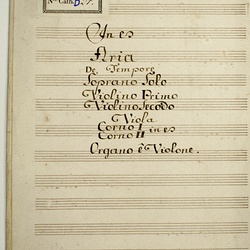 In es
Aria
De Tempore
Soprano Solo
Violino Primo
Violino Secodo
Viola
Corno I
Corno II in es
Organo è Violone.